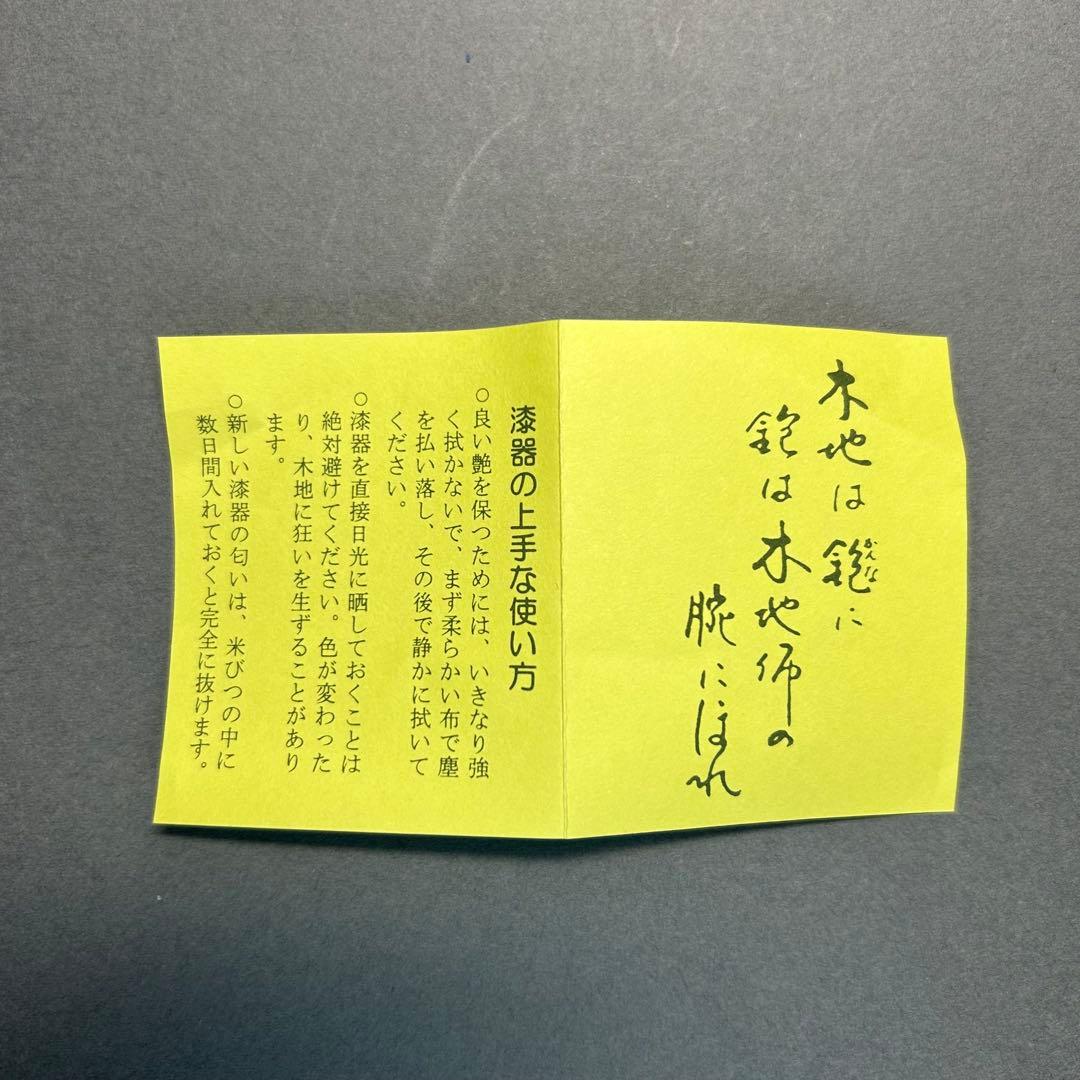 木地は鉋に
かんな
鉋は木地師の
腕にほれ
漆器の上手な使い方
○良い艶を保つためには、いきなり強
く拭かないで、まず柔らかい布で塵
を払い落し、その後で静かに拭いて
ください。
○漆器を直接日光に晒しておくことは
絶対避けてください。色が変わった
り、木地に狂いを生ずることがあり
ます。
○新しい漆器の匂いは、米びつの中に
数日間入れておくと完全に抜けます。